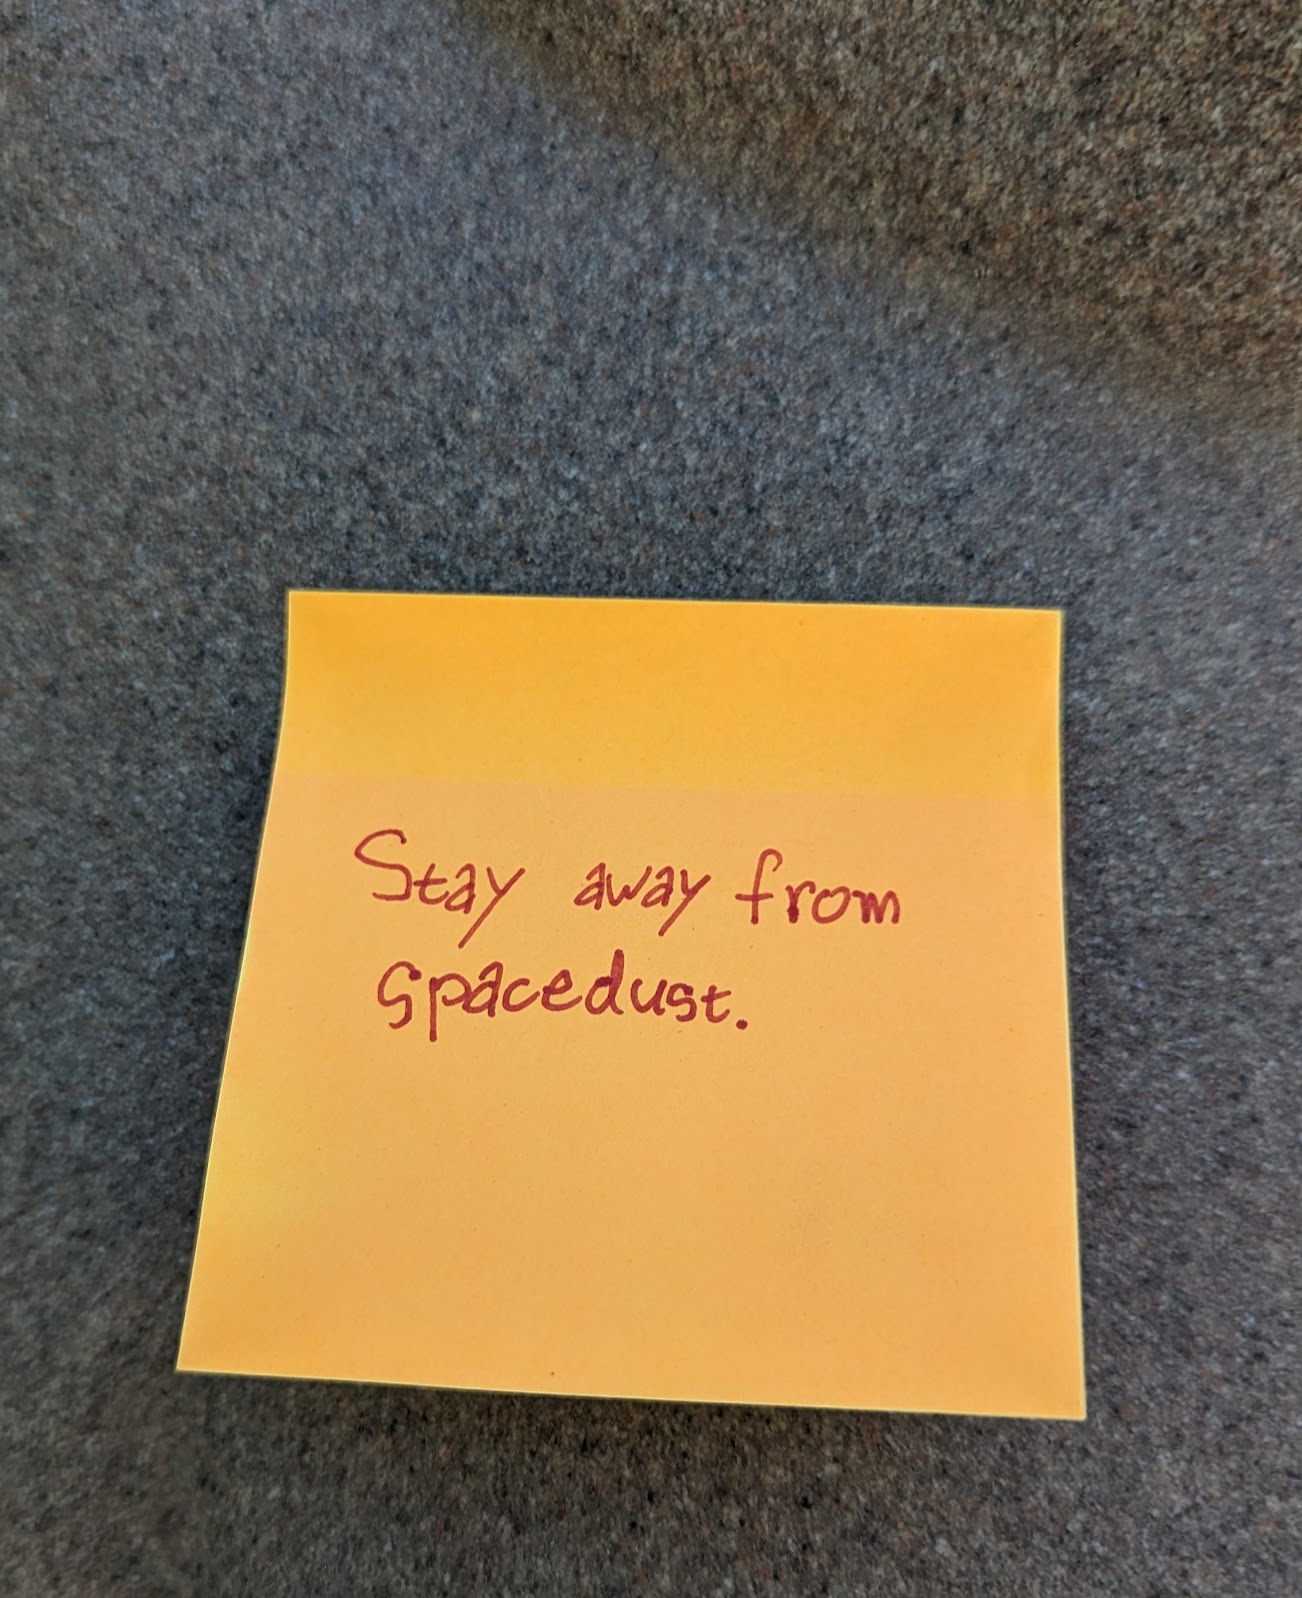 Stay away from
spacedust.